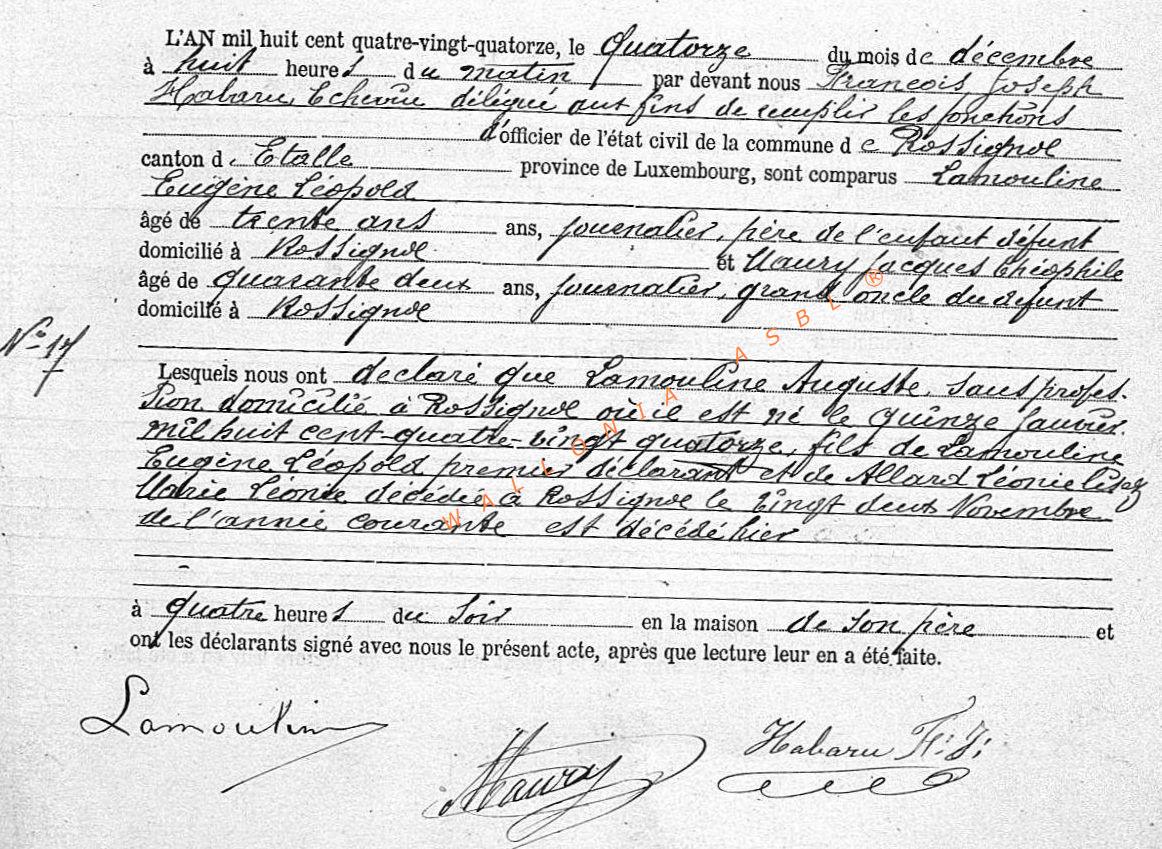 L'AN mil huit cent quatre-vingt-quatorze, le Quatorze du mois de décembre
à huit heures du matin par devant nous François Joseph
Habaru, Echevin délégué aux fins de remplir les fonctions
d'officier de l'état civil de la commune de Rossignol
canton de Etalle province de Luxembourg, sont comparus Lamouline
Eugène Léopold
âgé de trente ans ans, journalier, père de l'enfant défunt
domicilié à Rossignol et Maury Jacques Théophile
âgé de quarante deux ans, journalier, grand oncle du défunt
domicilié à Rossignol
No 17
Lesquels nous ont déclaré que Lamouline Auguste, sans profes-
sion domicilié à Rossignol où il est né le quinze Janvier
mil huit cent-quatre-vingt quatorze, fils de Lamouline
Eugène Léopold premier déclarant et de Allard Léonie
Marie Léonie décédée à Rossignol le vingt deux Novembre
de l'année courante est décédé hier
à quatre heures du soir en la maison de son père et
ont les déclarants signé avec nous le présent acte, après que lecture leur en a été faite.
Lamoulin
Maury
Habaru F: J:
WALLONIA ASBL ®